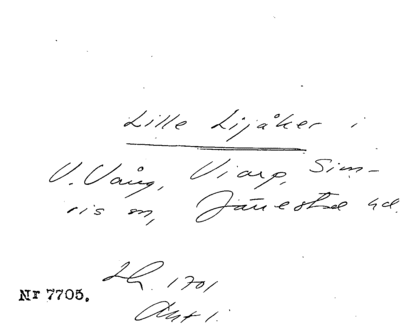 Lille Lijåker i
V. Vång, Viarp, Sim-
ris sn, Järrestad hd.
LH. 1701
Akt 1.
Nr 7705.